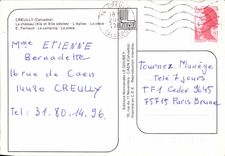 CREULLY (Calvados)
Le château (XIe et XIIe siècles) - L'église - La place
E. Parisant - Le camping - La place
Mme ETIENNE
Bernadette
16 rue de Caen
14480 CREULLY
Tel : 31.80.14.96.
Editions Normandes LE GOUBEY
CAEN
Tournez Manège
Télé 7 jours
TF1 Cedex 3645
75715 Paris Brune